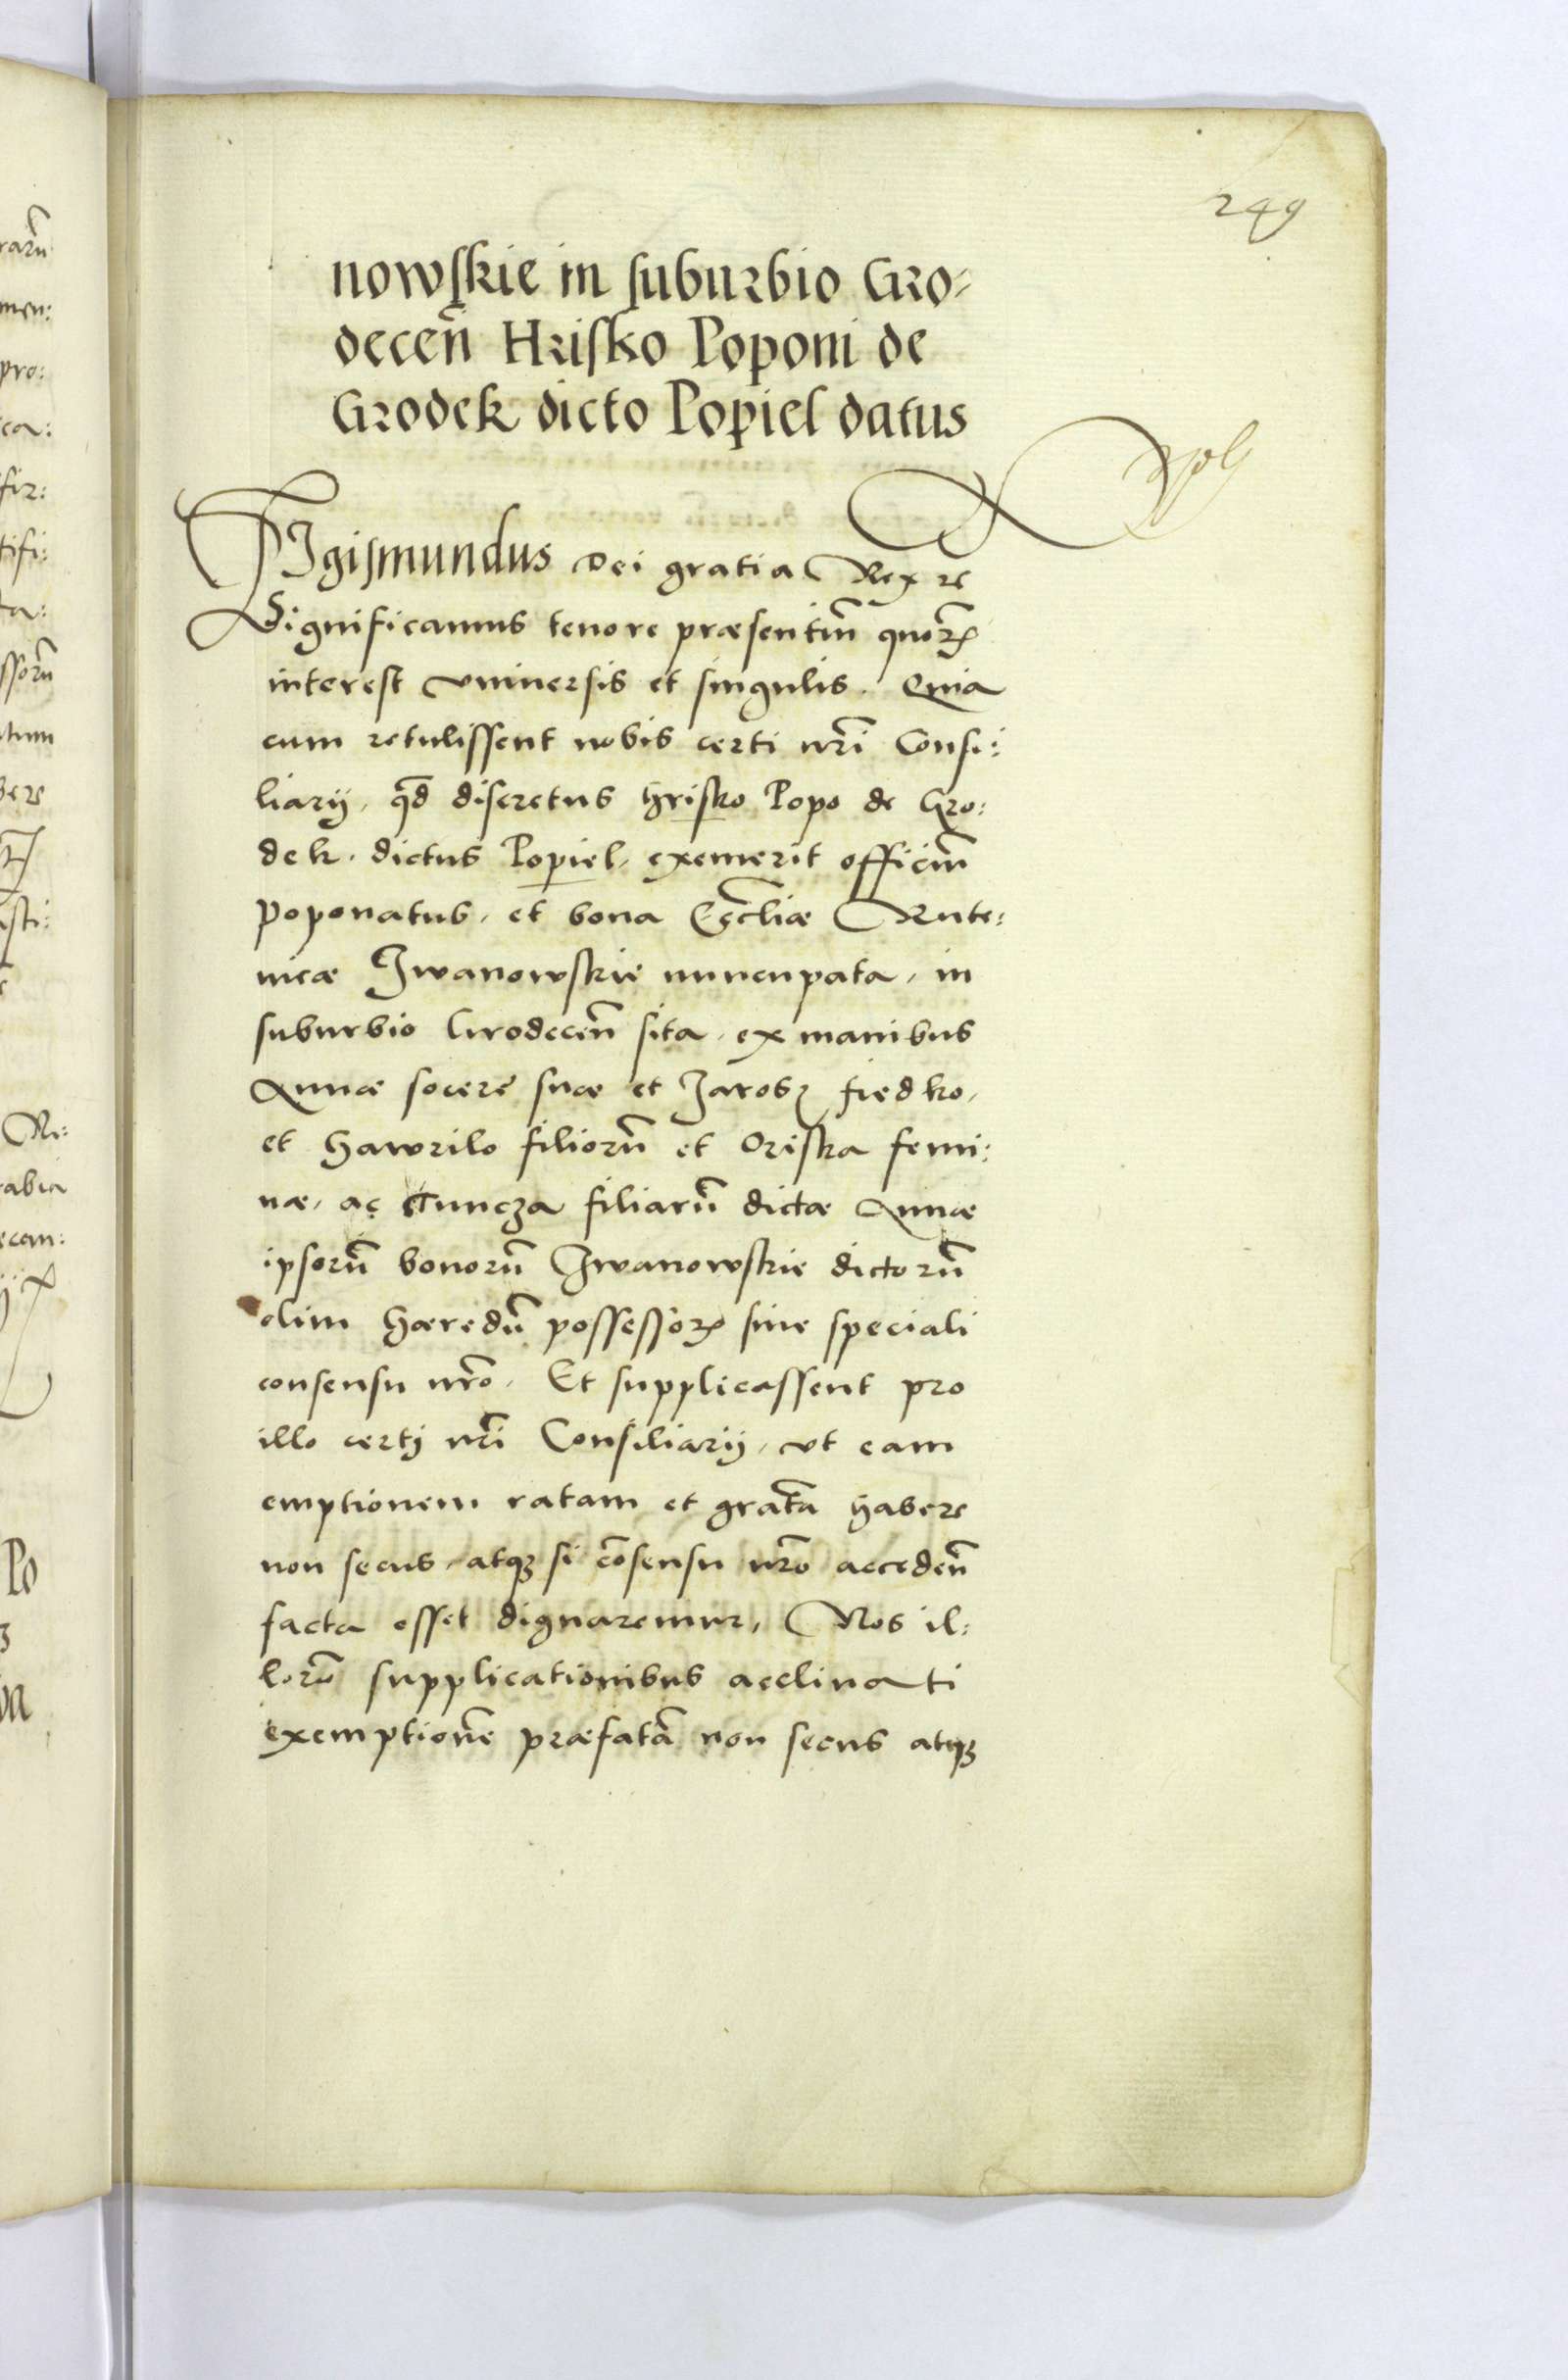 249
nowskie in suburbio Gro-
decen̄ Hrisko Poponi de
Grodek dicto Popiel datus
SIgismundus Dei gratia Rex rc
Significamus tenore præsentiū quorꝝ
interest vniuersis et singulis. Quia
cum retulissent nobis certi nr̄i Consi:
liarij, qd̄ discretus Hrisko Popo de Gro:
dek. dictus Popiel, exemerit officiū
poponatus, et bona Eccl̄iæ Rute:
nicæ Jwanowskie nuncupata, in
suburbio Grodecen̄ sita, ex manibus
Annæ socere suæ et Jarosz fiedko,
et Hawrilo filiorū et Oriska femi:
næ, ac Tuncza filiarū dictæ Annæ
ipsorū bonorū Jwanowskie dictorū
olim hæredū possessorꝝ sine speciali
consensu nrō. Et supplicassent pro
illo certj nr̄i Consiliarij, vt eam
emptionem ratam et gratā habere
non secus, atqꝫ si cōsensu nrō acceden̄
facta esset dignaremur, Nos il:
lorū supplicationibus acclinati
exemptionē præfatā non secus atqꝫ